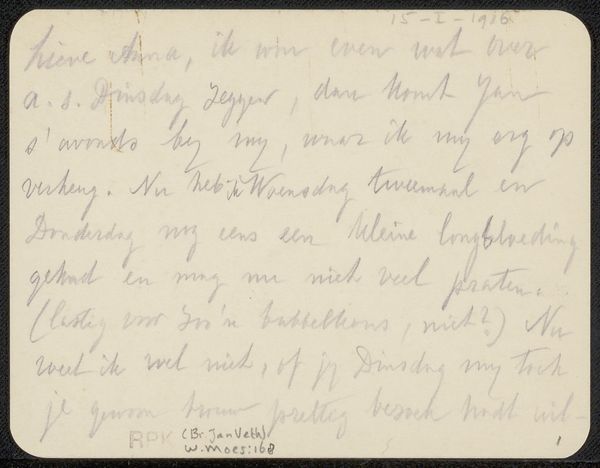 15-I-1916
Lieve Anna, ik wou even wat over
a.s. Dinsdag zeggen, dan komt Jan
s'avonds by my, waar ik my erg op
verheug. Nu heb ik Woensdag tweemaal en
Donderdag nog eens een kleine longbloeding
gehad en mag nu niet veel praten.
(lastig voor zoo'n babbelkous, niet?) Nu
weet ik wel niet, of jy Dinsdag my toch
je gewoon prettig bezoek hadt wil-
RPK (Br. Jan Veth)
W. Moes: 168
1